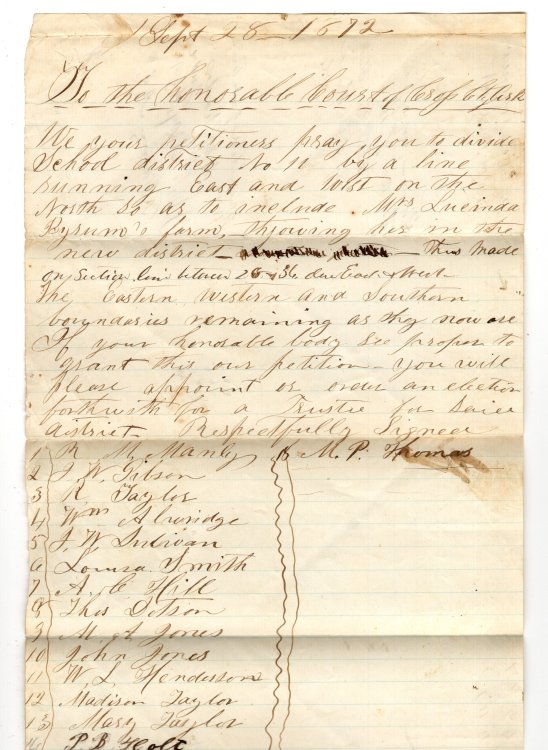 Sept 28 - 1872
To the Honorable Court of Cross C
We your petitioners pray you to divide
School district No 11 by a line
running East and West on the
North so as to include Mrs Lucinda
Byrum's farm, throwing her in the
new district - This made
on Section line between 25 & 36 due East & West -
The Eastern, Western and Southern
boundaries remaining as they now are
If your honorable body see proper to
grant this our petition - you will
please appoint or order an election
forthwith for a Trustee for Said
district - Respectfully Signed
1 R. M. Manly
2 J. W. Gibson
3 R. Taylor
4 Wm
5 J. W. Sulivan
6 Louisa Smith
7 A. C. Hill
8 Thos Dotson
9 M. A Jones
10 John Jones
11 W. L. Henderson
12 Madison Taylor
13 Mary Taylor
14 P. B. Holt
M. P. Thomas